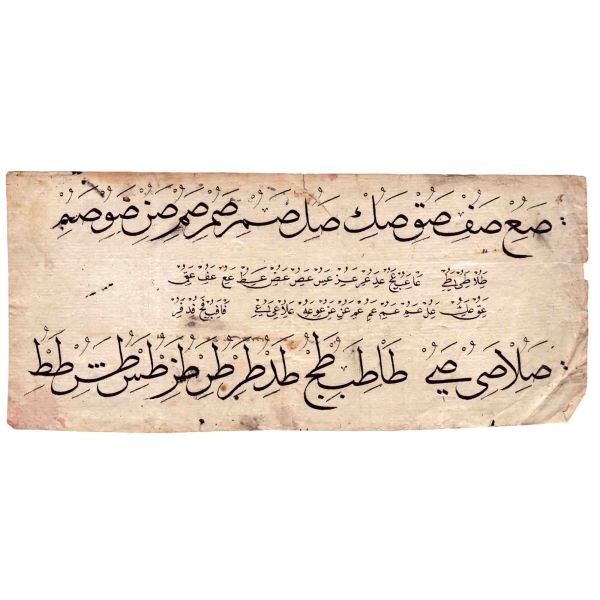 صع صف صق صك صل صم صم صم صن صو
طلا طى طے عا عب عج عد عر عس عص عط عع عف عق
عق عك عل عم عم عن عو عه علا عى عے فا فب فج فد فر
صلا صى صے طا طب طج طد طر طر طس طط